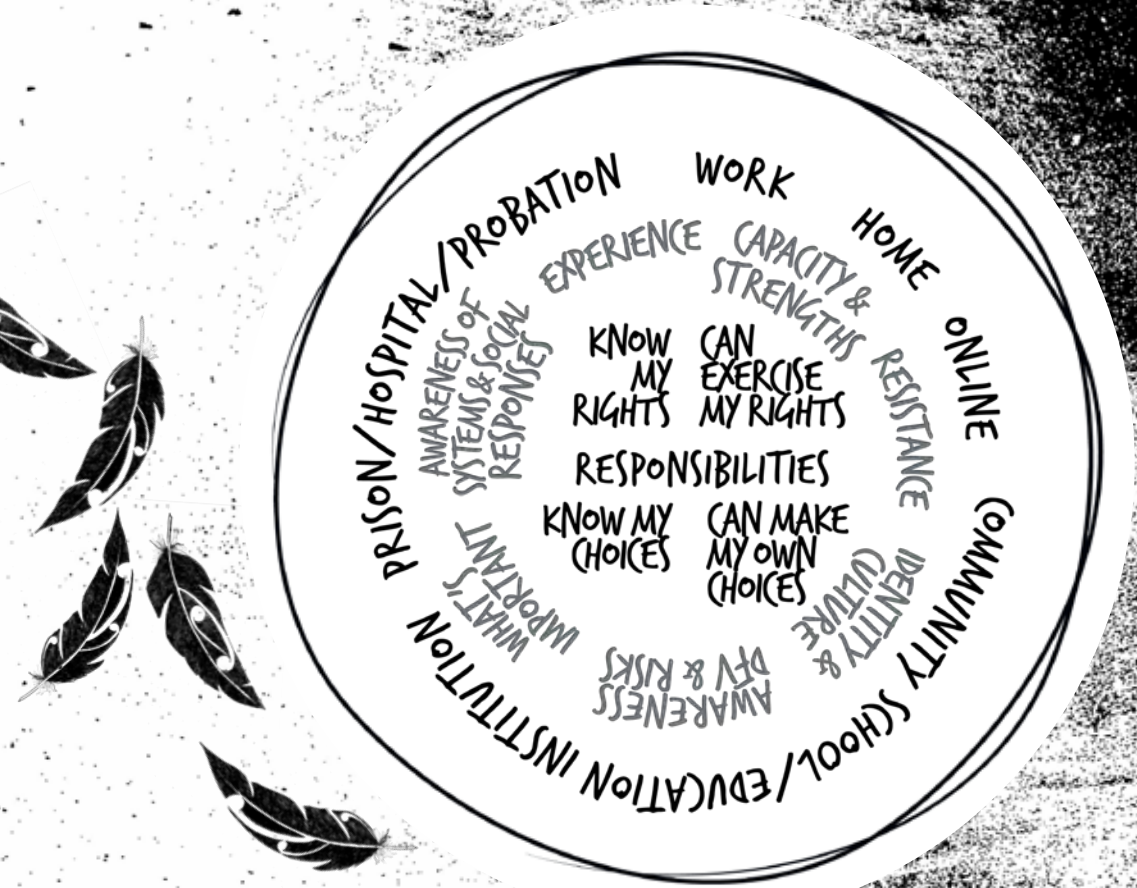 WORK
HOME
ONLINE
COMMUNITY
SCHOOL/EDUCATION INSTITUTION
PRISON/HOSPITAL/PROBATION
EXPERIENCE
CAPACITY &
STRENGTHS
RESISTANCE
IDENTITY &
CULTURE
AWARENESS
DFV & RISKS
WHAT'S
IMPORTANT
AWARENESS OF
SYSTEMS & SOCIAL
RESPONSES
KNOW
MY
RIGHTS
CAN
EXERCISE
MY RIGHTS
RESPONSIBILITIES
KNOW MY
CHOICES
CAN MAKE
MY OWN
CHOICES